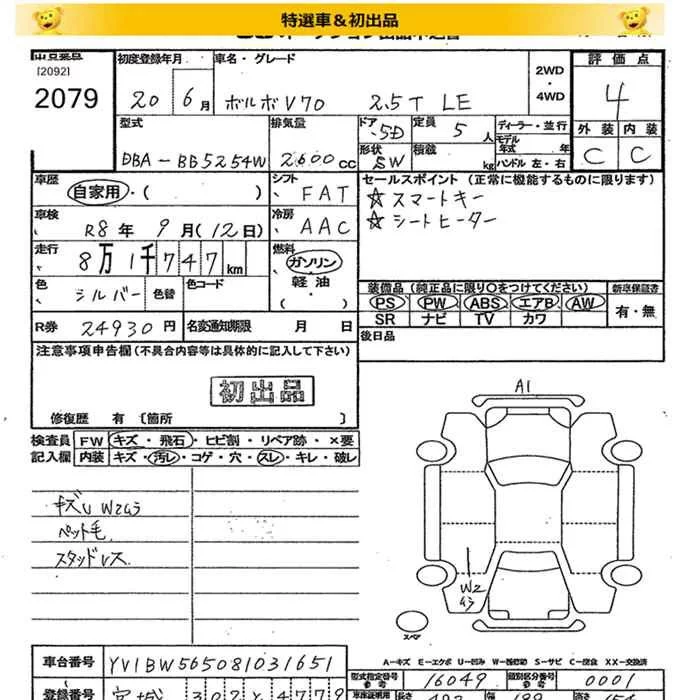 特選車＆初出品
[2092]
2079
初度登録年月
20 6月
車名・グレード
ボルボV70 2.5T LE
2WD
・
4WD
評価点
4
型式
DBA-BB5254W
排気量
2600cc
ドア
5D
形状
SW
定員
5人
積載
kg
ディーラー・並行
モデル年式 年
ハンドル 左・右
外装 内装
C C
車歴
自家用・( )
シフト
FAT
セールスポイント (正常に機能するものに限ります)
☆スマートキー
☆シートヒーター
車検
R8年 9月(12日)
冷房
AAC
走行
8万1千747km
燃料
ガソリン
軽油
・( )
色
シルバー
色替
色コード
装備品 (純正品に限り○をつけてください)
PS PW ABS エアB AW
SR ナビ TV カワ
新車保証書
有・無
R券 24930円
名変通知期限 月 日
後日品
注意事項申告欄 (不具合内容等は具体的に記入して下さい)
初出品
修復歴 有 [箇所 ]
検査員記入欄
FW キズ・飛石・ヒビ割・リペア跡・×要
内装 キズ・汚レ・コゲ・穴・スレ・キレ・破レ
キズU W2ムラ
ペット毛
スタッドレス
A1
W2
ムラ
スペア
A-キズ E-エクボ U-凹み W-板修跡 S-サビ C-腐食 XX-交換済
車台番号 YV1BW565081031651
型式指定番号 16049
類別区分番号 0001
登録番号